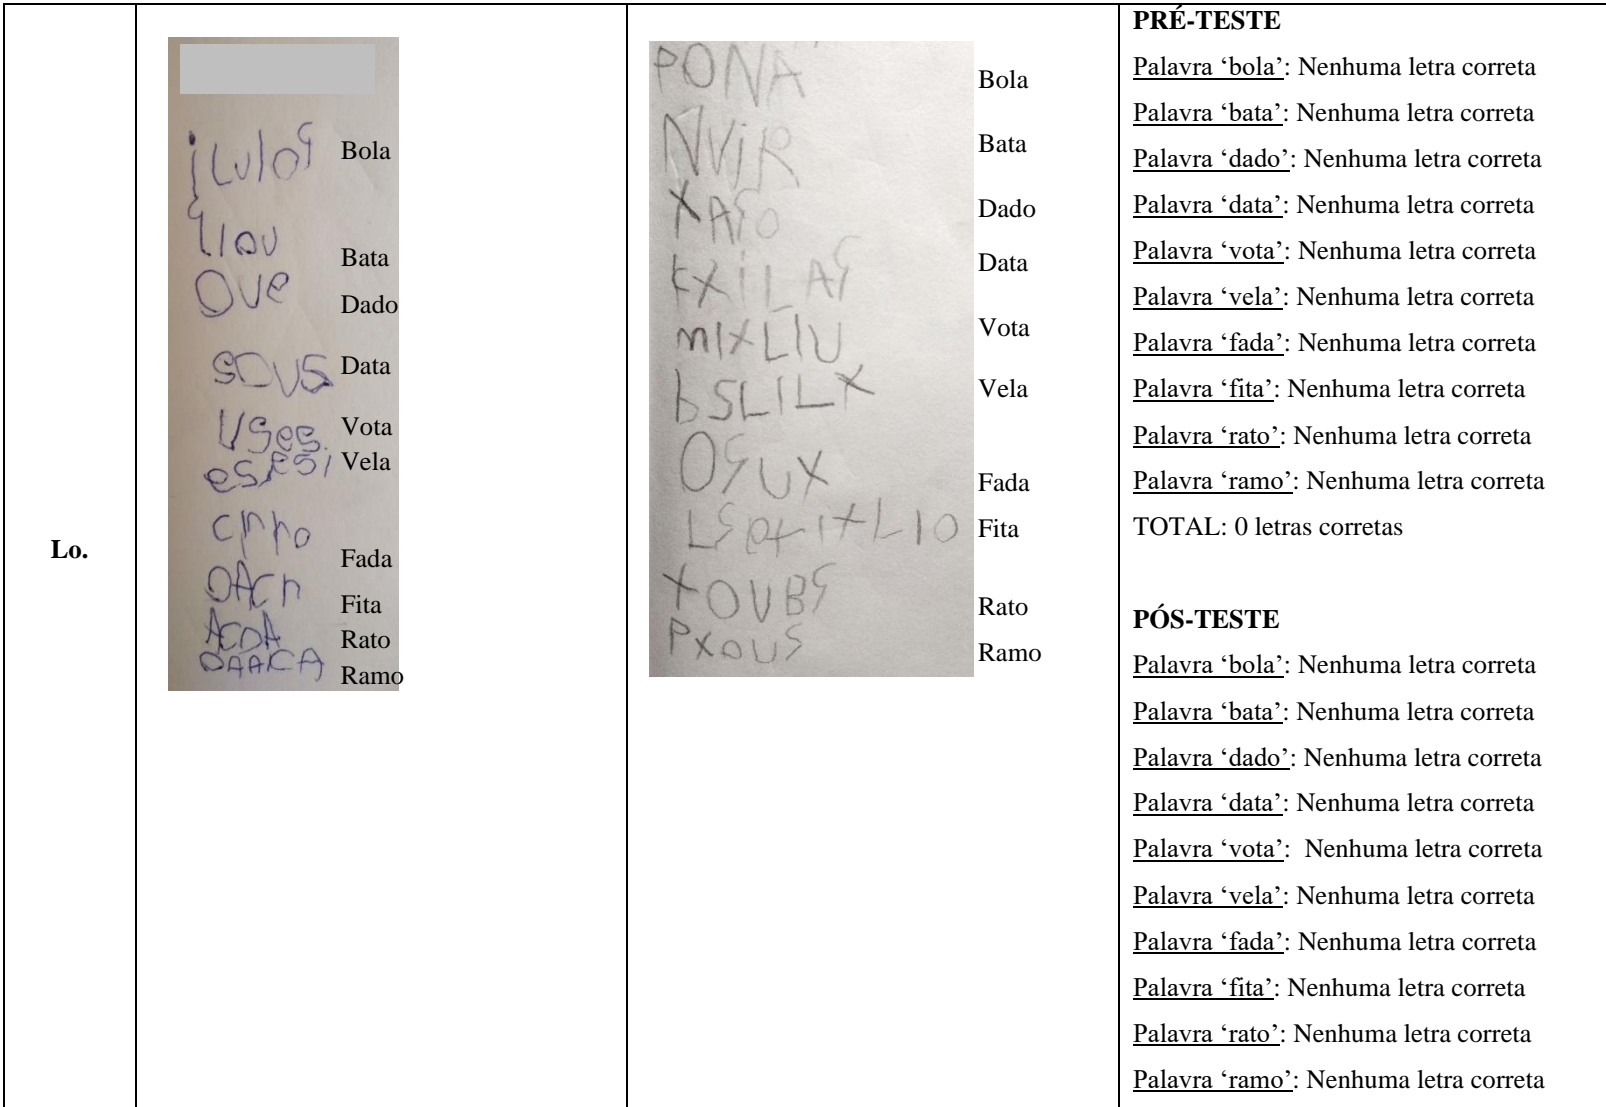 Lo.
Bola
Bata
Dado
Data
Vota
Vela
Fada
Fita
Rato
Ramo
OVe
SDVS
USes
OACn
ACDA
OAAICA
PONA
Bola
NViR
Bata
XASO
Dado
Data
MIXLIU
Vota
bSLILX
Vela
OSUX
Fada
Fita
XOUBS
Rato
PXOUS
Ramo
PRÉ-TESTE
Palavra ‘bola’: Nenhuma letra correta
Palavra ‘bata’: Nenhuma letra correta
Palavra ‘dado’: Nenhuma letra correta
Palavra ‘data’: Nenhuma letra correta
Palavra ‘vota’: Nenhuma letra correta
Palavra ‘vela’: Nenhuma letra correta
Palavra ‘fada’: Nenhuma letra correta
Palavra ‘fita’: Nenhuma letra correta
Palavra ‘rato’: Nenhuma letra correta
Palavra ‘ramo’: Nenhuma letra correta
TOTAL: 0 letras corretas
PÓS-TESTE
Palavra ‘bola’: Nenhuma letra correta
Palavra ‘bata’: Nenhuma letra correta
Palavra ‘dado’: Nenhuma letra correta
Palavra ‘data’: Nenhuma letra correta
Palavra ‘vota’: Nenhuma letra correta
Palavra ‘vela’: Nenhuma letra correta
Palavra ‘fada’: Nenhuma letra correta
Palavra ‘fita’: Nenhuma letra correta
Palavra ‘rato’: Nenhuma letra correta
Palavra ‘ramo’: Nenhuma letra correta